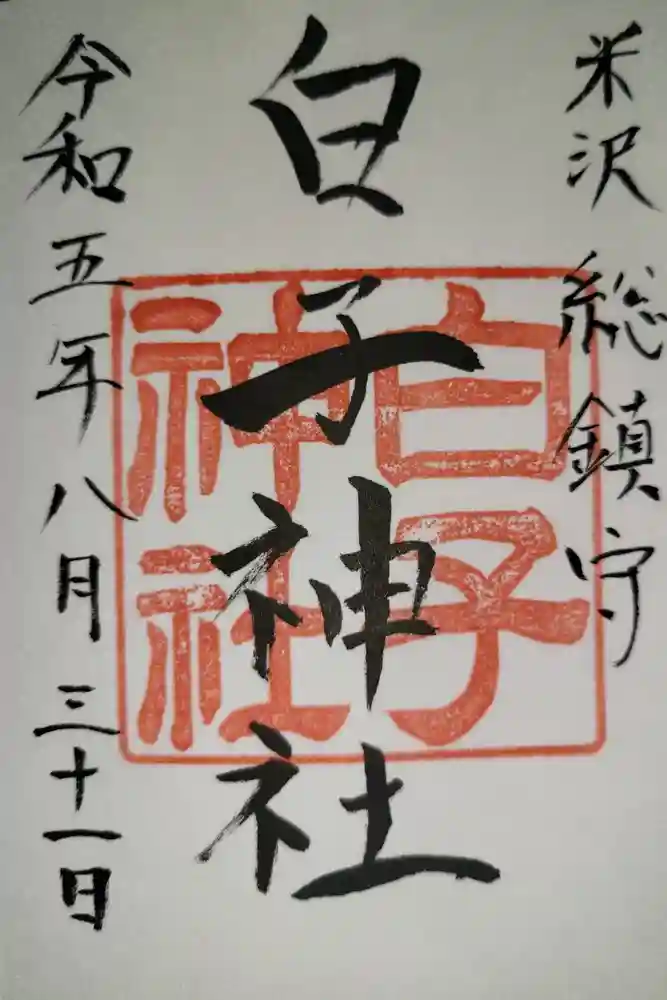 米沢総鎮守
白子神社
白子神社
令和五年八月三十一日